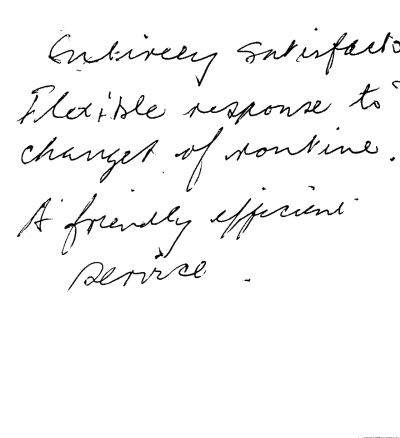 Entirely satisfacto
Flexible response to
changes of routine.
A friendly efficient
service.